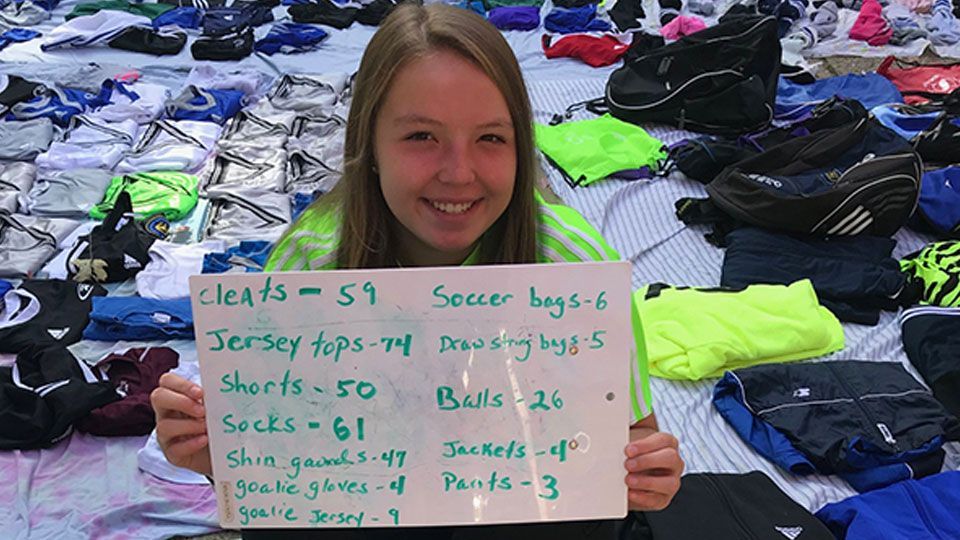 Cleats - 59
Jersey tops - 74
Shorts - 50
Socks - 61
Shin gaurds - 47
goalie gloves - 4
goalie Jersey - 9
Soccer bags - 6
Draw string bags - 5
Balls - 26
Jackets - 4
Pants - 3